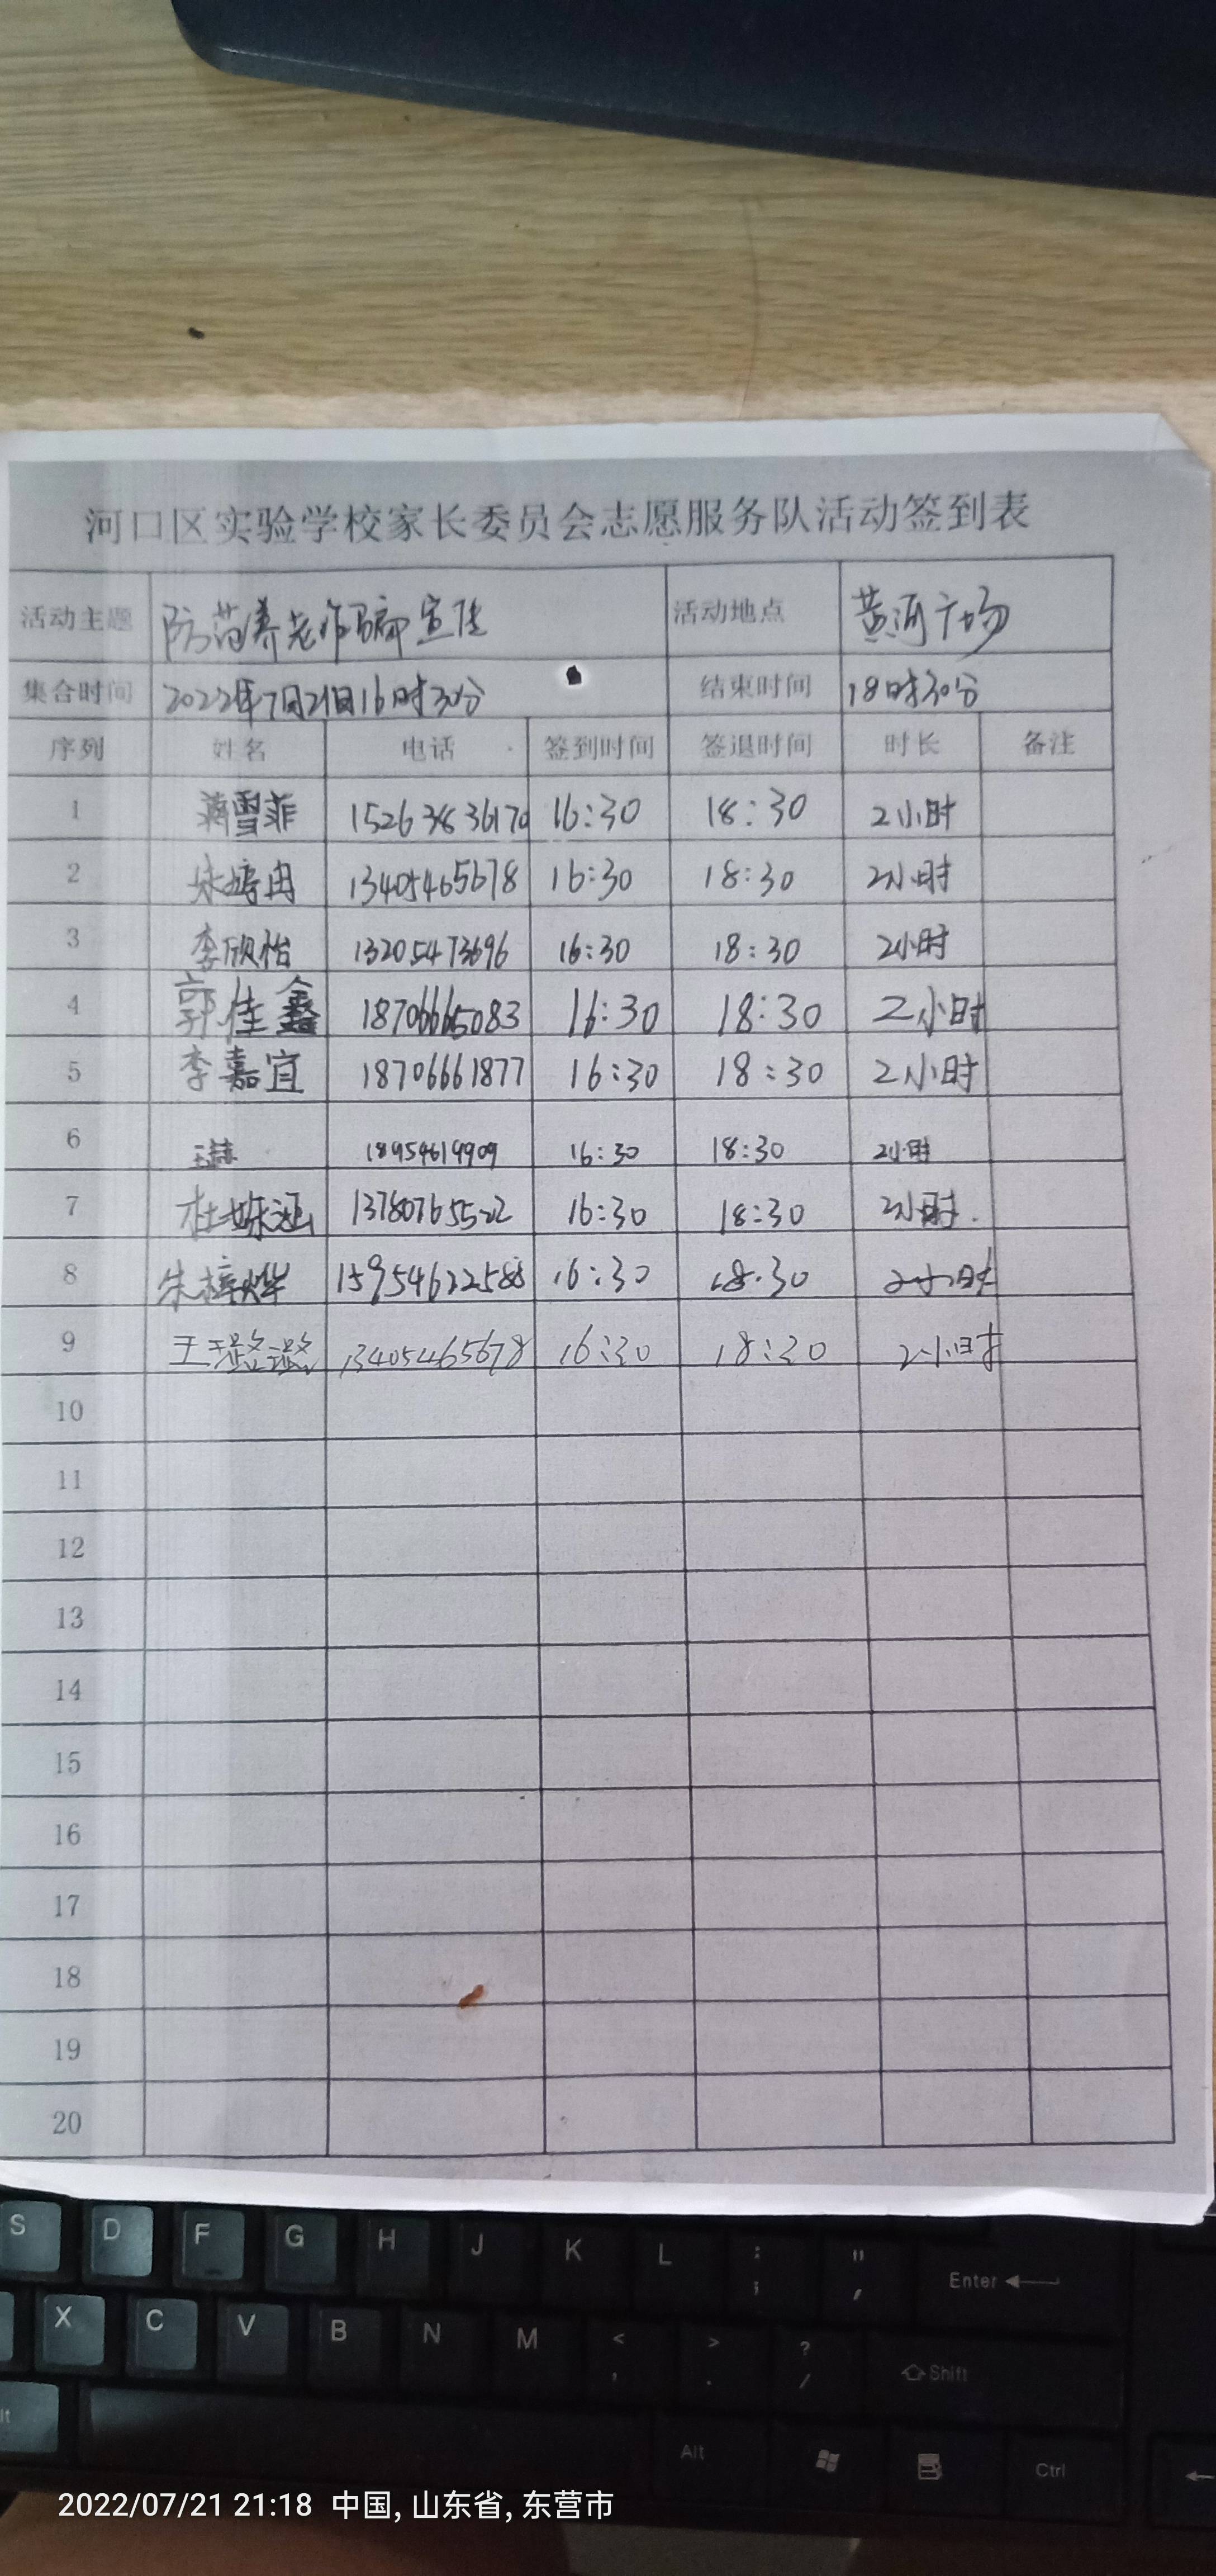 河口区实验学校家长委员会志愿服务队活动签到表
活动主题 防范养老诈骗宣传 活动地点 黄河广场
集合时间 2022年7月21日16时30分 结束时间 18时30分
序列 姓名 电话 签到时间 签退时间 时长 备注
1 蒋雪菲 15263836170 16:30 18:30 2小时
2 13405465678 16:30 18:30 2小时
3 李欣怡 13205473696 16:30 18:30 2小时
4 郭佳鑫 18706665083 16:30 18:30 2小时
5 李嘉宜 18706661877 16:30 18:30 2小时
6 18954619909 16:30 18:30 2小时
7 杜姝涵 13780765522 16:30 18:30 2小时
8 朱梓烨 15954622588 16:30 18:30 2小时
9 王璐璐 13405465678 16:30 18:30 2小时
10
11
12
13
14
15
16
17
18
19
20
S D F G H J K L : ; " ' Enter
X C V B N M < , > . ? / Shift
lt Alt Ctrl
2022/07/21 21:18 中国, 山东省, 东营市